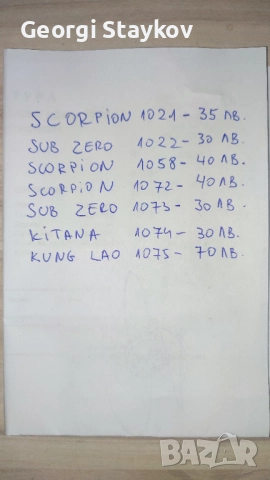 Georgi Staykov
SCORPION 1021 - 35 ЛВ.
SUB ZERO 1022 - 30 ЛВ.
SCORPION 1058 - 40 ЛВ.
SCORPION 1072 - 40 ЛВ.
SUB ZERO 1073 - 30 ЛВ.
KITANA 1074 - 30 ЛВ.
KUNG LAO 1075 - 70 ЛВ.
BAZAR